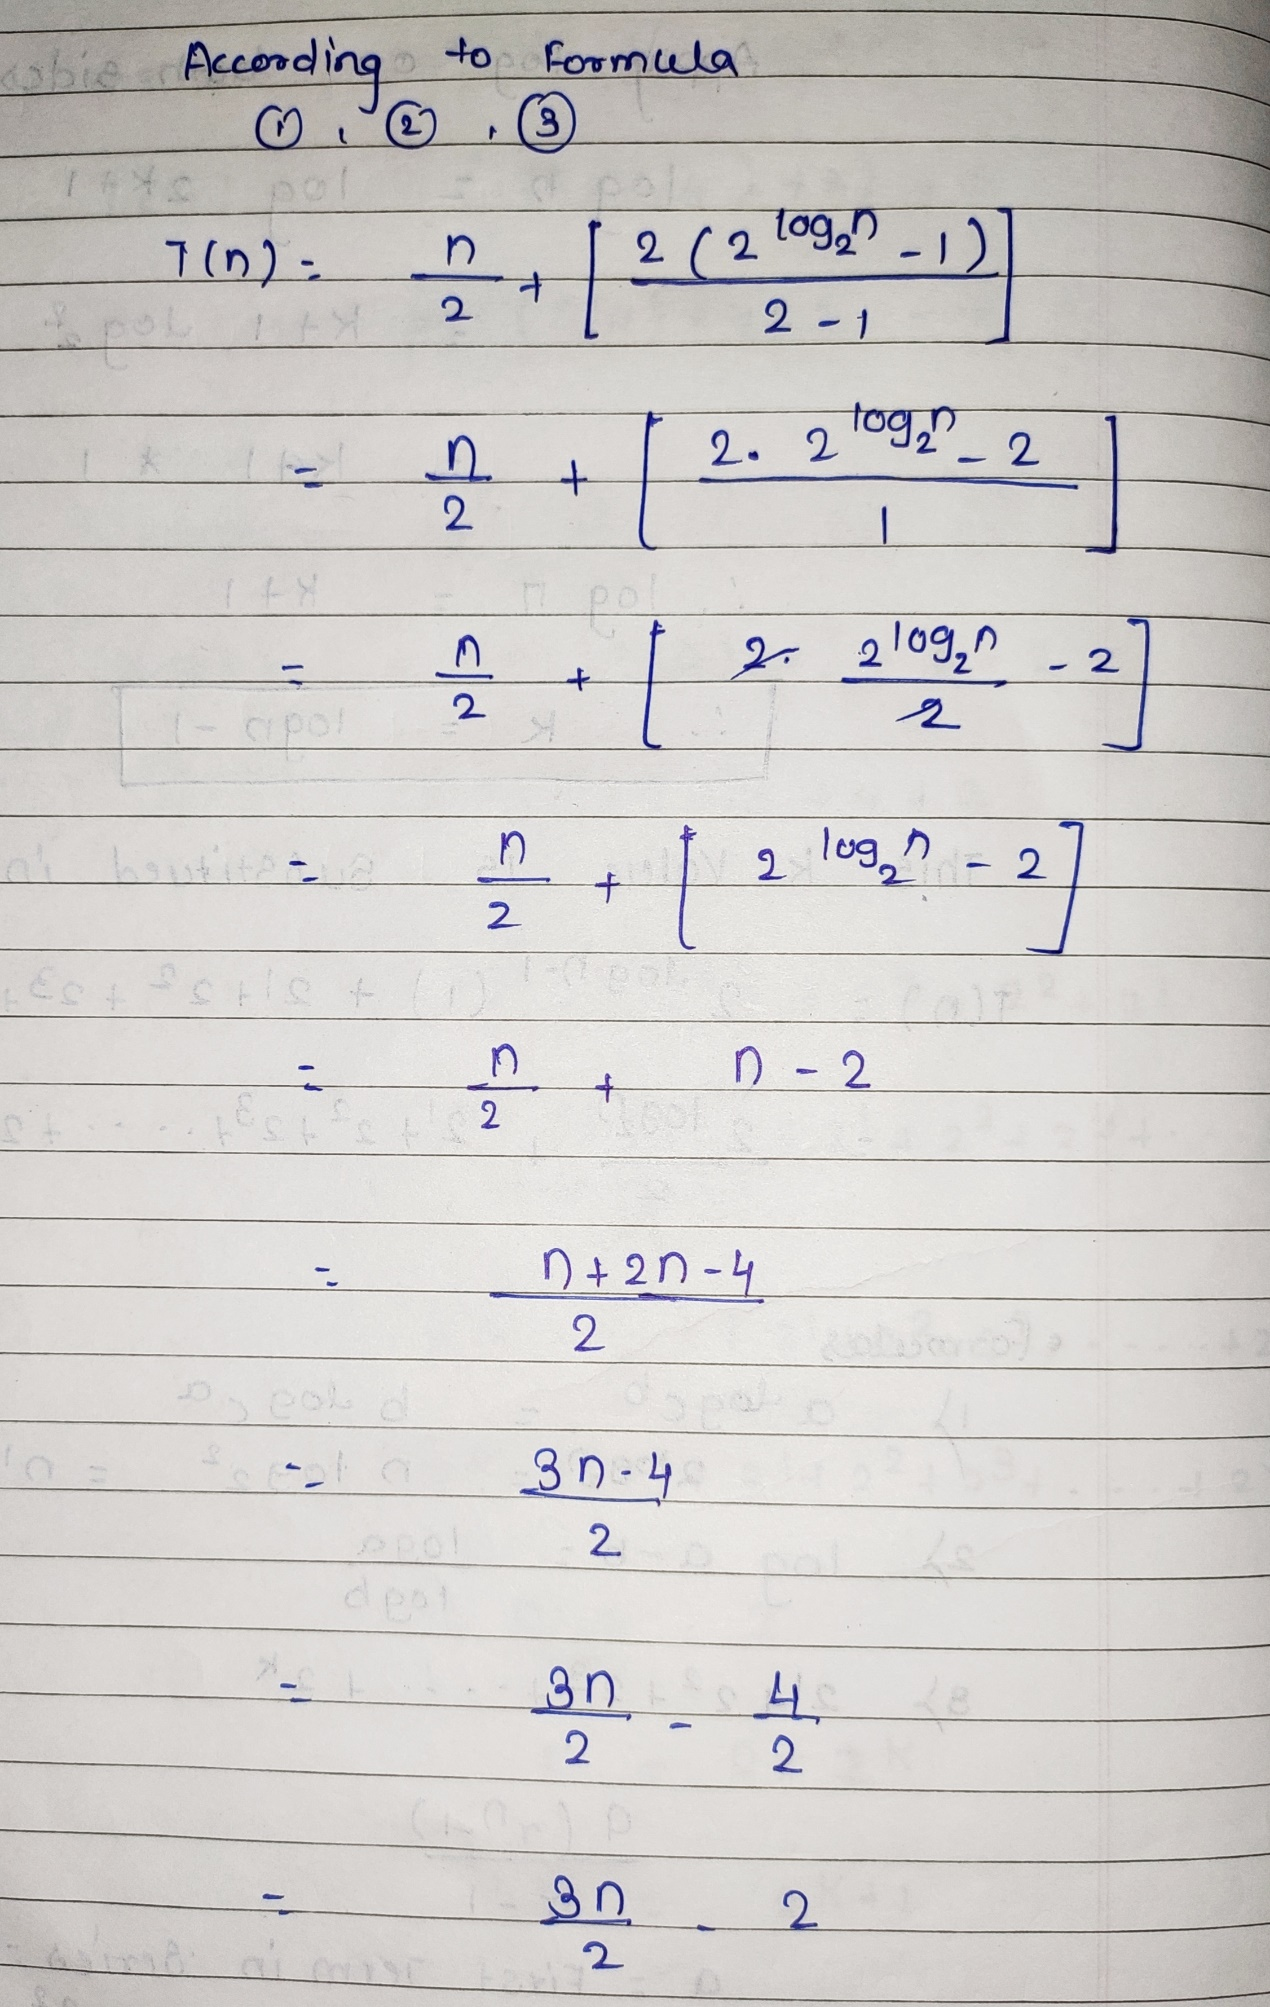 According to Formula
①, ②, ③
T(n) = n/2 + [2(2^log₂n - 1) / 2-1]
= n/2 + [2. 2^log₂n - 2 / 1]
= n/2 + [2. 2^log₂n/2 - 2]
= n/2 + [2^log₂n - 2]
= n/2 + n - 2
= n+2n-4 / 2
= 3n-4 / 2
= 3n/2 - 4/2
= 3n/2 - 2